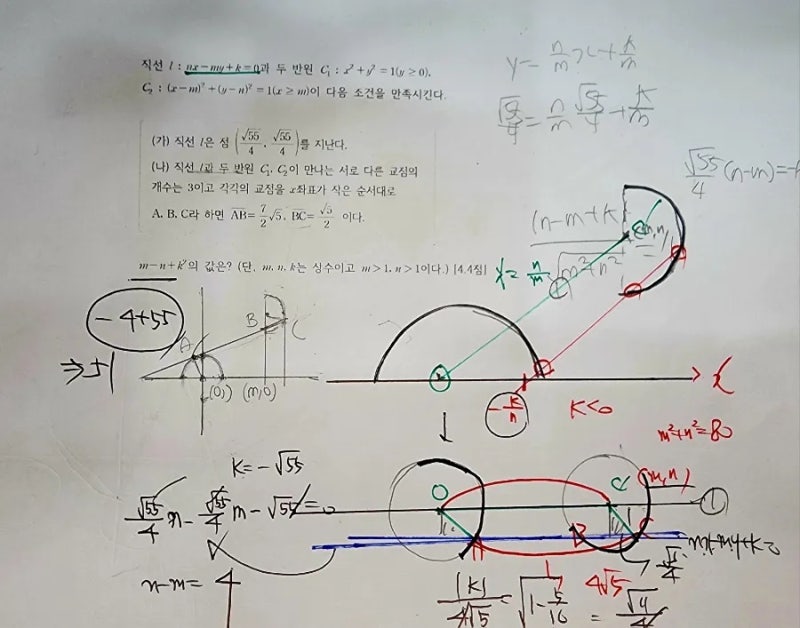 직선 l : nx-my+k=0과 두 반원 C₁ : x²+y²=1(y≥0),
C₂ : (x-m)²+(y-n)²=1(x≥m)이 다음 조건을 만족시킨다.
(가) 직선 l은 점 (√55/4, √55/4)를 지난다.
(나) 직선 l과 두 반원 C₁, C₂이 만나는 서로 다른 교점의
개수는 3이고 각각의 교점을 x좌표가 작은 순서대로
A, B, C라 하면 AB=7/2√5, BC=√5/2 이다.
m-n+k²의 값은? (단, m, n, k는 상수이고 m>1, n>1이다.) [4.4점]
y= n/m x+k/m
√55/4 = n/m √55/4 + k/m
√55/4 (n-m)=-k
|n-m+k|
√m²+n²
(m,n)
n/m
-4+55
⇒ 51
A
B
C
(m,0)
-k/n
k<0
x
m²+n²=80
k=-√55
√55/4 n - √55/4 m - √55=0
n-m= 4
O
A
B
C
(m,n)
①
nx-my+k=0
4√5
|k|/4√5 = √1-5/16 = √11/4